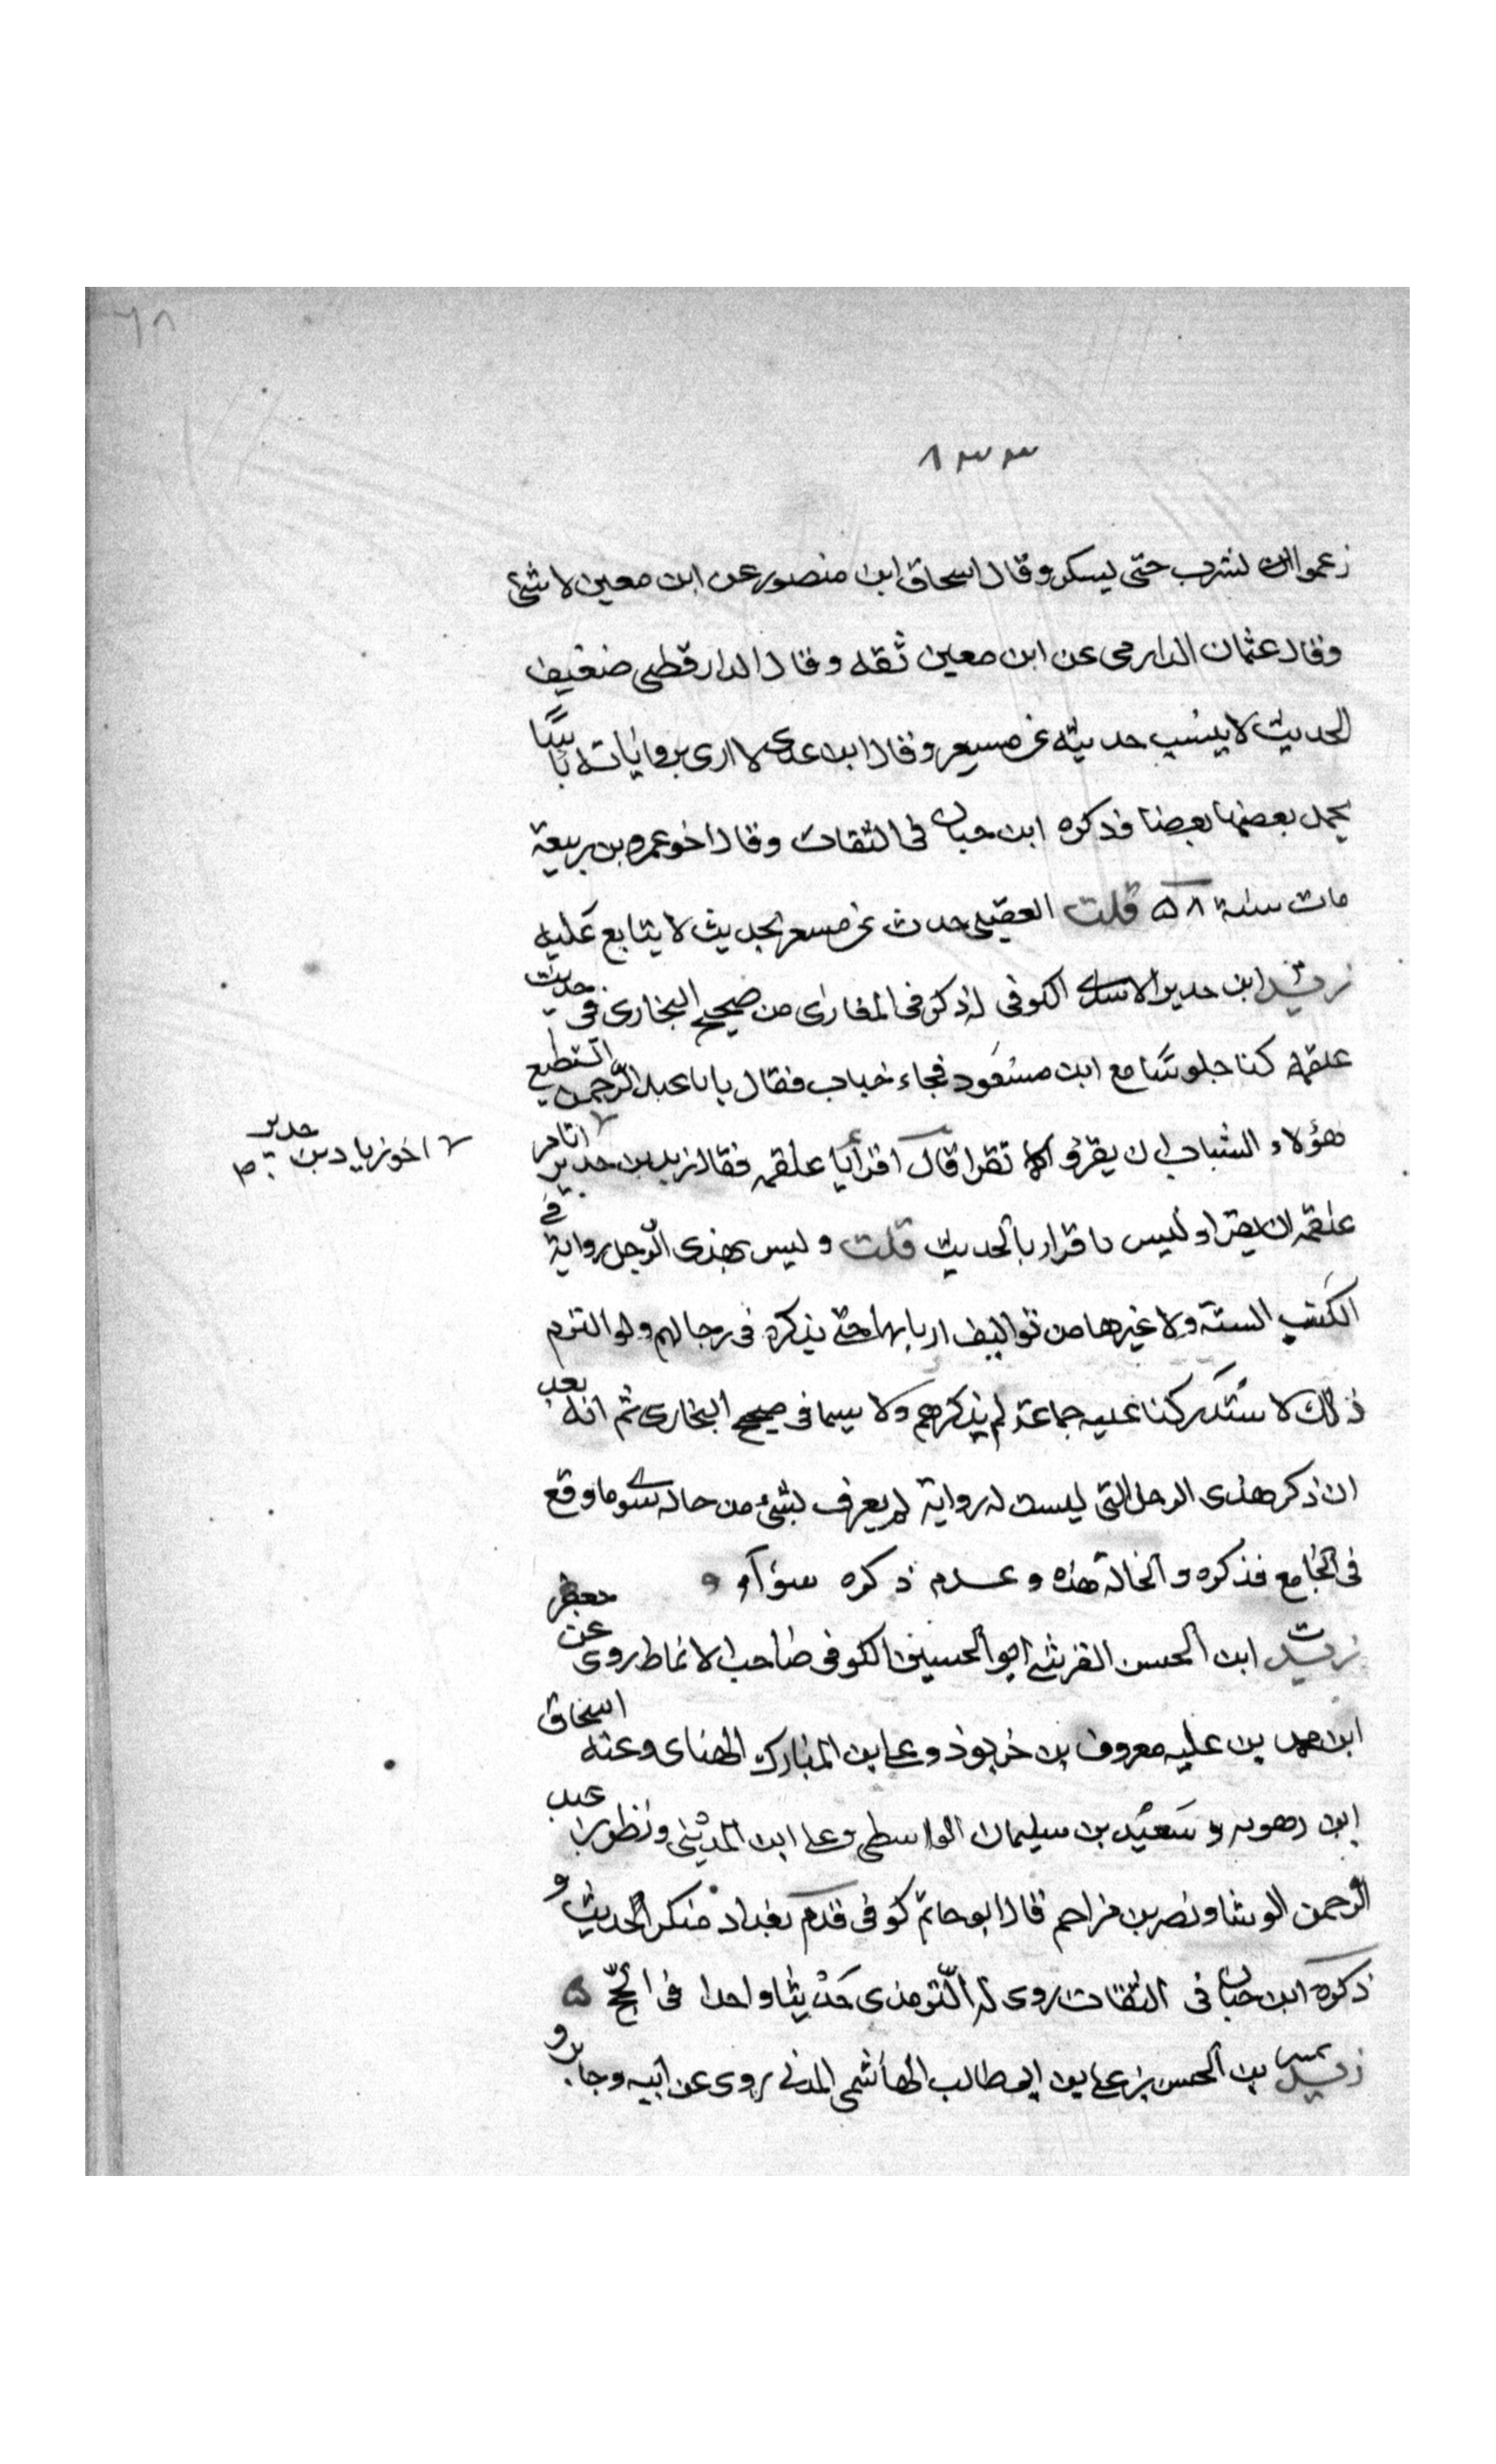 ٦٨
٨٣٣
زعموا انه لشرب حتى يسكر وقال اسحاق ابن منصور عن ابن معين لا شئ
وقال عثمان الدارمى عن ابن معين ثقه وقال الدارقطى ضعيف
الحديث لا يشبه حديثه عن مسعر وقال ابن عدى لا ارى برواياته باسًا
يحمل بعضها بعضا وذكره ابن حبان فى الثقات وقال اخو عمرو بن ربيعة
مات سنة ٥٨ قلت العقيلى حدث عن مسعر بحديث لا يتابع عليه
زيد ابن حدير الاسدى الكوفى له ذكر فى المغازى من صحيح البخارى فى حديث
علقمه كنا جلوسًا مع ابن مسعود فجاء خباب فقال يابا عبد الرحمن ايستطيع
هؤلاء الشباب ان يقرؤ كما تقرا قال اقرأ يا علقمه فقال زيد بن حدير اتامر
اخو زياد بن حدير
علقمه ان يقرا وليس باقرانا الحديث قلت وليس لهذى الرجل رواية فى
الكتب الستة ولا غيرها من تواليف اربابها حتى يذكره فى رجالهم ولو التزم
ذلك لاستدركنا عليه جماعة لم يذكرهم ولا سيما فى صحيح البخارى ثم انه بعد
ان ذكر هذى الرجل التى ليست له رواية لم يعرف بشئ من حاله سوى ما وقع
فى الجامع فذكره والحالة هذه وعدم ذكره سوآء
زيد ابن الحسن القرشى ابو الحسين الكوفى صاحب الانماط روى عن جعفر
ابن محمد بن على ومعروف بن خربوذ وعلى بن المبارك الهناى وعنه اسحاق
ابن رهويه وسعيد بن سليمان الواسطى وعلى ابن المدينى ونظر بن عبد
الرحمن الوشا ونصر بن مزاحم قال ابو حاتم كوفى قدم بغداد منكر الحديث و
ذكره ابن حبان فى الثقات روى له التومذى حديثا واحدا فى الحج ه
زيد بن الحسن بن على بن ابى طالب الهاشمى المدنى روى عن ابيه وجابر و